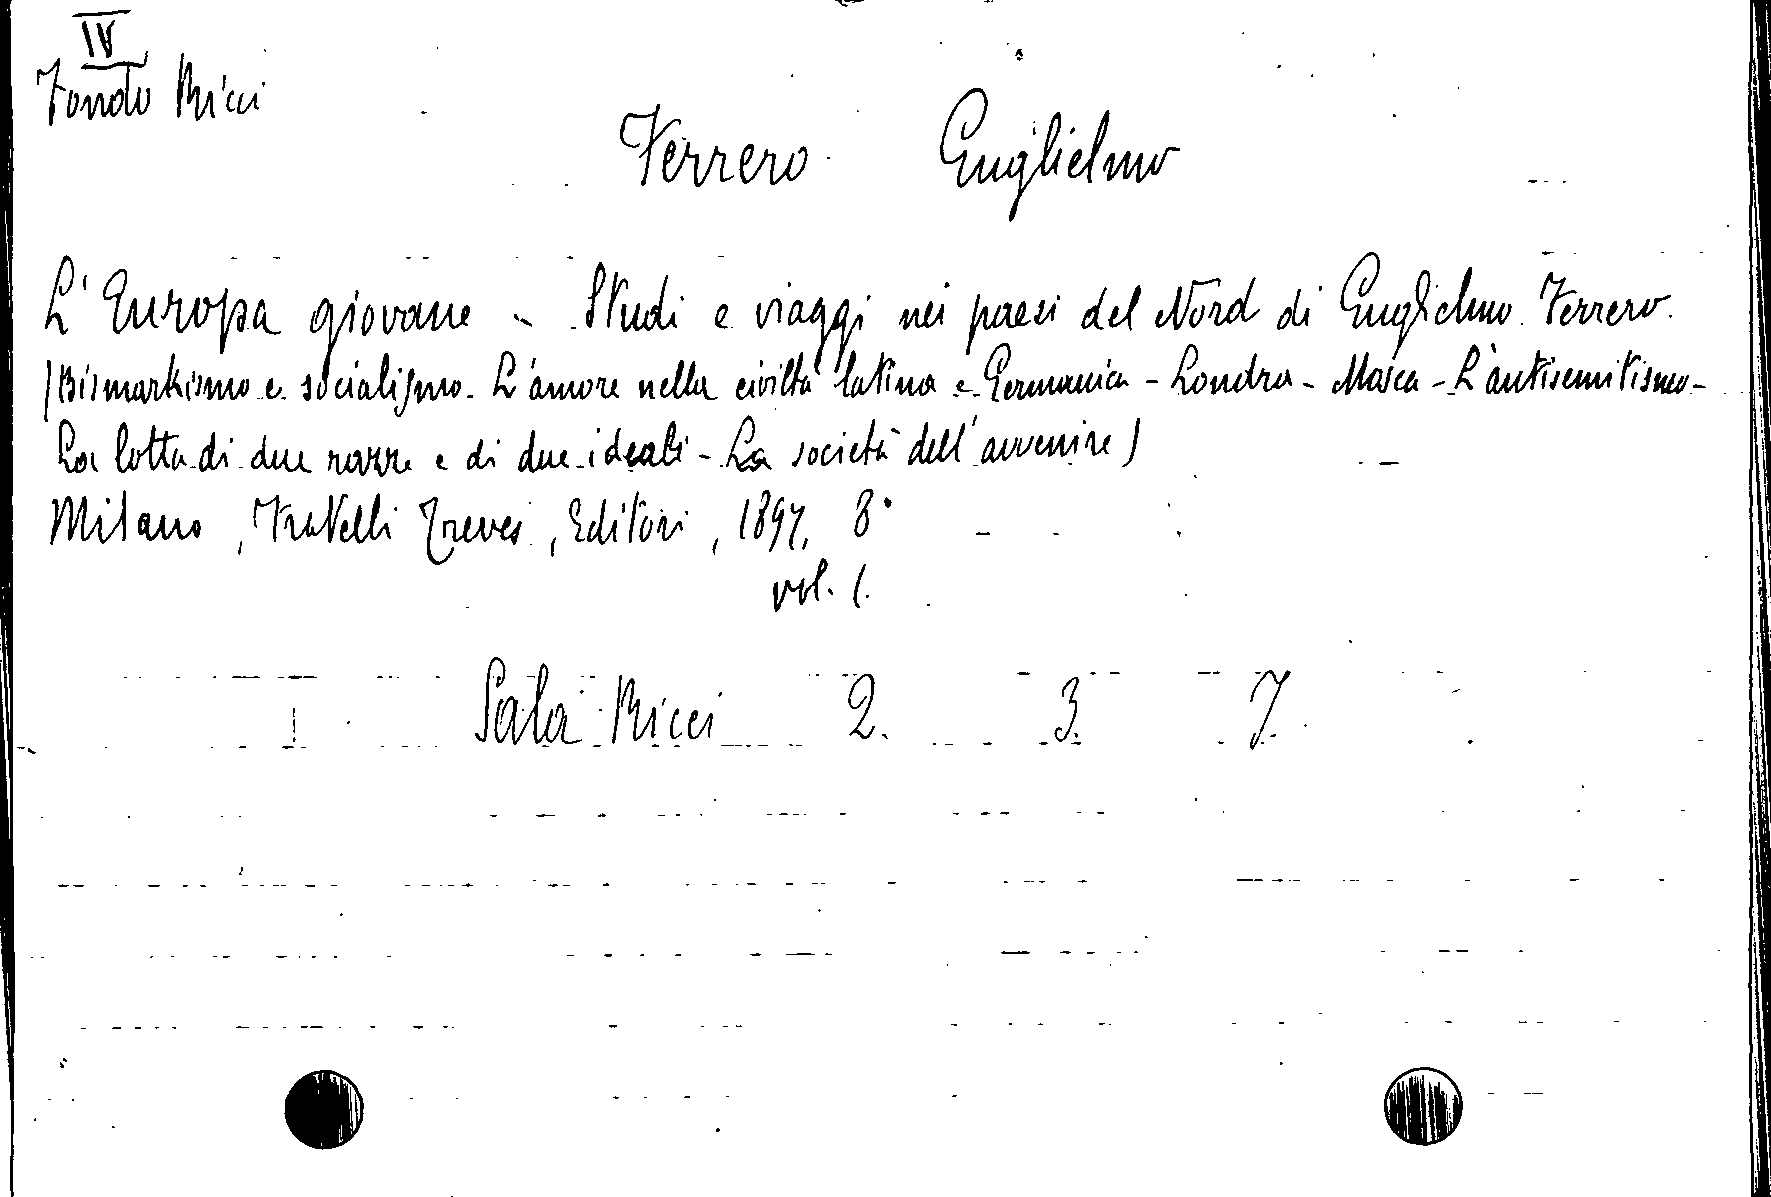 IV
Fondo Ricci
Ferrero Guglielmo
L'Europa giovane - Studi e viaggi nei paesi del Nord di Guglielmo Ferrero.
(Bismarkismo e socialismo - L'amore nella civiltà latina e Germanica - Londra - Mosca - L'antisemitismo -
La lotta di due razze e di due ideali - La società dell'avvenire)
Milano, Fratelli Treves, Editori, 1897, 8°
vol. 1.
Sala Ricci 2. 3. 7.